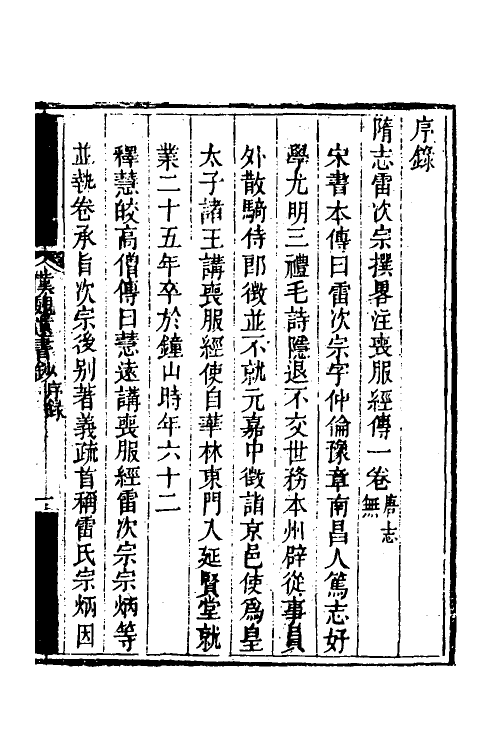 序錄
隋志雷次宗撰畧注喪服經傳一卷唐志無
宋書本傳曰雷次宗字仲倫豫章南昌人篤志好
學尤明三禮毛詩隱退不交世務本州辟從事員
外散騎侍郎徵並不就元嘉中徵詣京邑使爲皇
太子諸王講喪服經使自華林東門入延賢堂就
業二十五年卒於鐘山時年六十二
釋慧皎高僧傳曰慧遠講喪服經雷次宗宗炳等
並執卷承旨次宗後別著義疏首稱雷氏宗炳因
漢魏遺書鈔
序錄
一